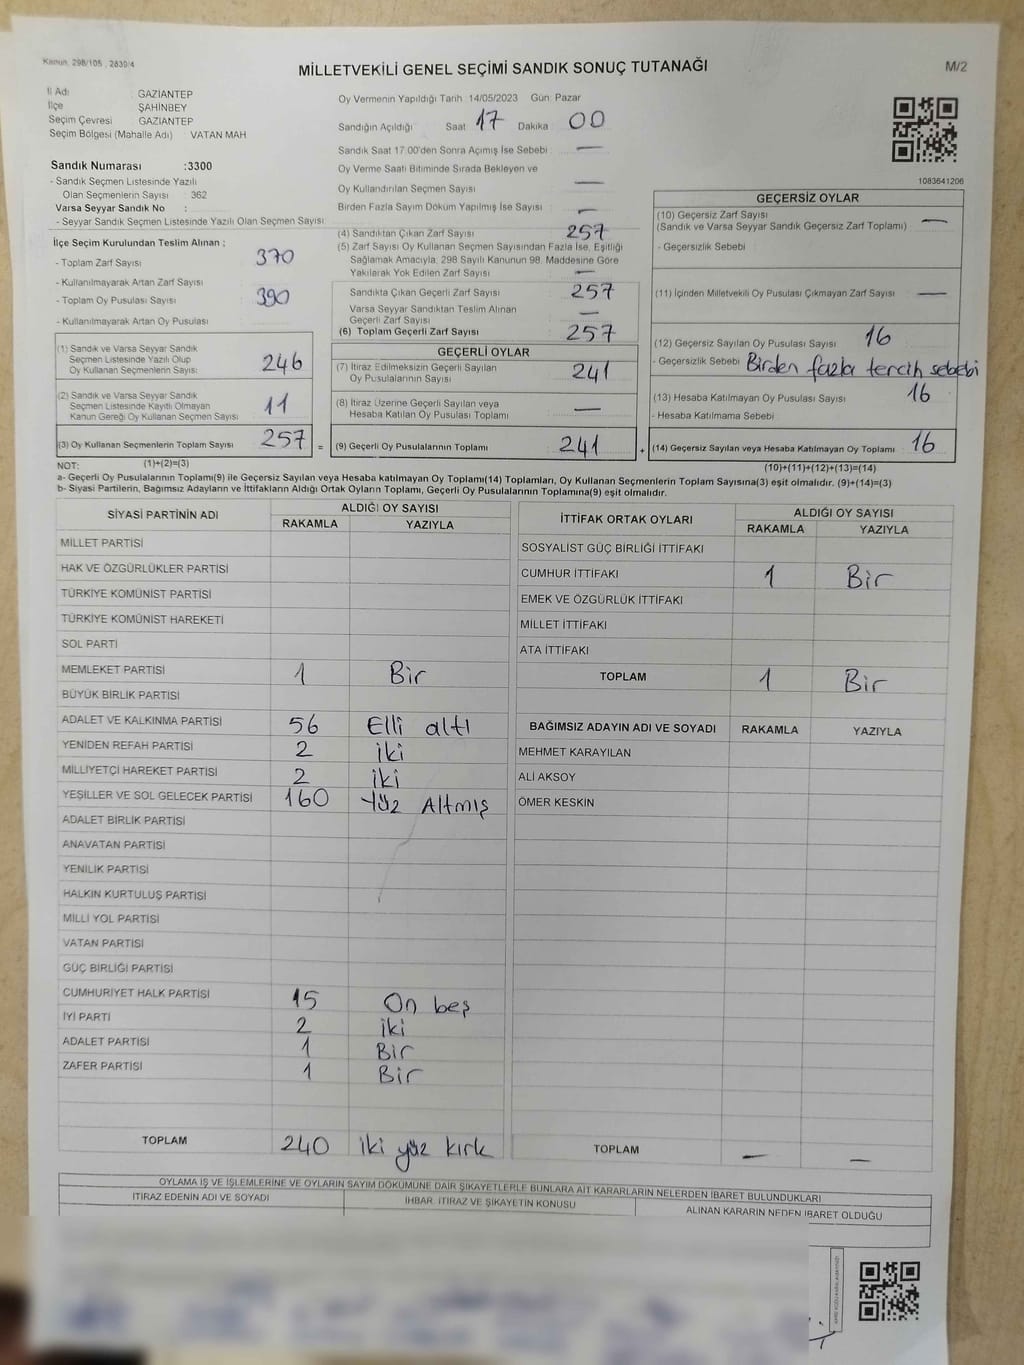 Kanun. 298/105 , 2839/4
MİLLETVEKİLİ GENEL SEÇİMİ SANDIK SONUÇ TUTANAĞI
M/2
İl Adı : GAZİANTEP
İlçe ŞAHİNBEY
Seçim Çevresi GAZİANTEP
Seçim Bölgesi (Mahalle Adı) : VATAN MAH
Sandık Numarası :3300
- Sandık Seçmen Listesinde Yazılı
Olan Seçmenlerin Sayısı : 362
Varsa Seyyar Sandık No :
- Seyyar Sandık Seçmen Listesinde Yazılı Olan Seçmen Sayısı
İlçe Seçim Kurulundan Teslim Alınan ;
- Toplam Zarf Sayısı 370
- Kullanılmayarak Artan Zarf Sayısı
- Toplam Oy Pusulası Sayısı 390
- Kullanılmayarak Artan Oy Pusulası
(1) Sandık ve Varsa Seyyar Sandık
Seçmen Listesinde Yazılı Olup
Oy Kullanan Seçmenlerin Sayısı: 246
(2) Sandık ve Varsa Seyyar Sandık
Seçmen Listesinde Kayıtlı Olmayan
Kanun Gereği Oy Kullanan Seçmen Sayısı 11
(3) Oy Kullanan Seçmenlerin Toplam Sayısı 257 =
Oy Vermenin Yapıldığı Tarih :14/05/2023 Gün: Pazar
Sandığın Açıldığı Saat 17 Dakika 00
Sandık Saat 17.00'den Sonra Açımış İse Sebebi : —
Oy Verme Saati Bitiminde Sırada Bekleyen ve
Oy Kullandırılan Seçmen Sayısı —
Birden Fazla Sayım Döküm Yapılmış İse Sayısı —
(4) Sandıktan Çıkan Zarf Sayısı 257
(5) Zarf Sayısı Oy Kullanan Seçmen Sayısından Fazla İse, Eşitliği
Sağlamak Amacıyla, 298 Sayılı Kanunun 98. Maddesine Göre
Yakılarak Yok Edilen Zarf Sayısı —
Sandıkta Çıkan Geçerli Zarf Sayısı 257
Varsa Seyyar Sandıktan Teslim Alınan
Geçerli Zarf Sayısı —
(6) Toplam Geçerli Zarf Sayısı 257
GEÇERLİ OYLAR
(7) İtiraz Edilmeksizin Geçerli Sayılan
Oy Pusulalarının Sayısı 241
(8) İtiraz Üzerine Geçerli Sayılan veya
Hesaba Katılan Oy Pusulası Toplamı —
(9) Geçerli Oy Pusulalarının Toplamı 241 +
1083641206
GEÇERSİZ OYLAR
(10) Geçersiz Zarf Sayısı
(Sandık ve Varsa Seyyar Sandık Geçersiz Zarf Toplamı) —
- Geçersizlik Sebebi
(11) İçinden Milletvekili Oy Pusulası Çıkmayan Zarf Sayısı —
(12) Geçersiz Sayılan Oy Pusulası Sayısı 16
- Geçersizlik Sebebi Birden fazla tercih sebebi
(13) Hesaba Katılmayan Oy Pusulası Sayısı 16
- Hesaba Katılmama Sebebi
(14) Geçersiz Sayılan veya Hesaba Katılmayan Oy Toplamı 16
NOT: (1)+(2)=(3) (10)+(11)+(12)+(13)=(14)
a- Geçerli Oy Pusulalarının Toplamı(9) ile Geçersiz Sayılan veya Hesaba Katılmayan Oy Toplamı(14) Toplamları, Oy Kullanan Seçmenlerin Toplam Sayısına(3) eşit olmalıdır. (9)+(14)=(3)
b- Siyasi Partilerin, Bağımsız Adayların ve İttifakların Aldığı Ortak Oyların Toplamı, Geçerli Oy Pusulalarının Toplamına(9) eşit olmalıdır.
SİYASİ PARTİNİN ADI ALDIĞI OY SAYISI
RAKAMLA YAZIYLA
MİLLET PARTİSİ
HAK VE ÖZGÜRLÜKLER PARTİSİ
TÜRKİYE KOMÜNİST PARTİSİ
TÜRKİYE KOMÜNİST HAREKETİ
SOL PARTİ
MEMLEKET PARTİSİ 1 Bir
BÜYÜK BİRLİK PARTİSİ
ADALET VE KALKINMA PARTİSİ 56 Elli altı
YENİDEN REFAH PARTİSİ 2 iki
MİLLİYETÇİ HAREKET PARTİSİ 2 iki
YEŞİLLER VE SOL GELECEK PARTİSİ 160 Yüz Altmış
ADALET BİRLİK PARTİSİ
ANAVATAN PARTİSİ
YENİLİK PARTİSİ
HALKIN KURTULUŞ PARTİSİ
MİLLİ YOL PARTİSİ
VATAN PARTİSİ
GÜÇ BİRLİĞİ PARTİSİ
CUMHURİYET HALK PARTİSİ 15 On beş
İYİ PARTİ 2 iki
ADALET PARTİSİ 1 Bir
ZAFER PARTİSİ 1 Bir
TOPLAM 240 iki yüz kırk
İTTİFAK ORTAK OYLARI ALDIĞI OY SAYISI
RAKAMLA YAZIYLA
SOSYALİST GÜÇ BİRLİĞİ İTTİFAKI
CUMHUR İTTİFAKI 1 Bir
EMEK VE ÖZGÜRLÜK İTTİFAKI
MİLLET İTTİFAKI
ATA İTTİFAKI
TOPLAM 1 Bir
BAĞIMSIZ ADAYIN ADI VE SOYADI RAKAMLA YAZIYLA
MEHMET KARAYILAN
ALİ AKSOY
ÖMER KESKİN
TOPLAM — —
OYLAMA İŞ VE İŞLEMLERİNE VE OYLARIN SAYIM DÖKÜMÜNE DAİR ŞİKAYETLERLE BUNLARA AİT KARARLARIN NELERDEN İBARET BULUNDUKLARI
İTİRAZ EDENİN ADI VE SOYADI İHBAR, İTİRAZ VE ŞİKAYETİN KONUSU ALINAN KARARIN NEDEN İBARET OLDUĞU